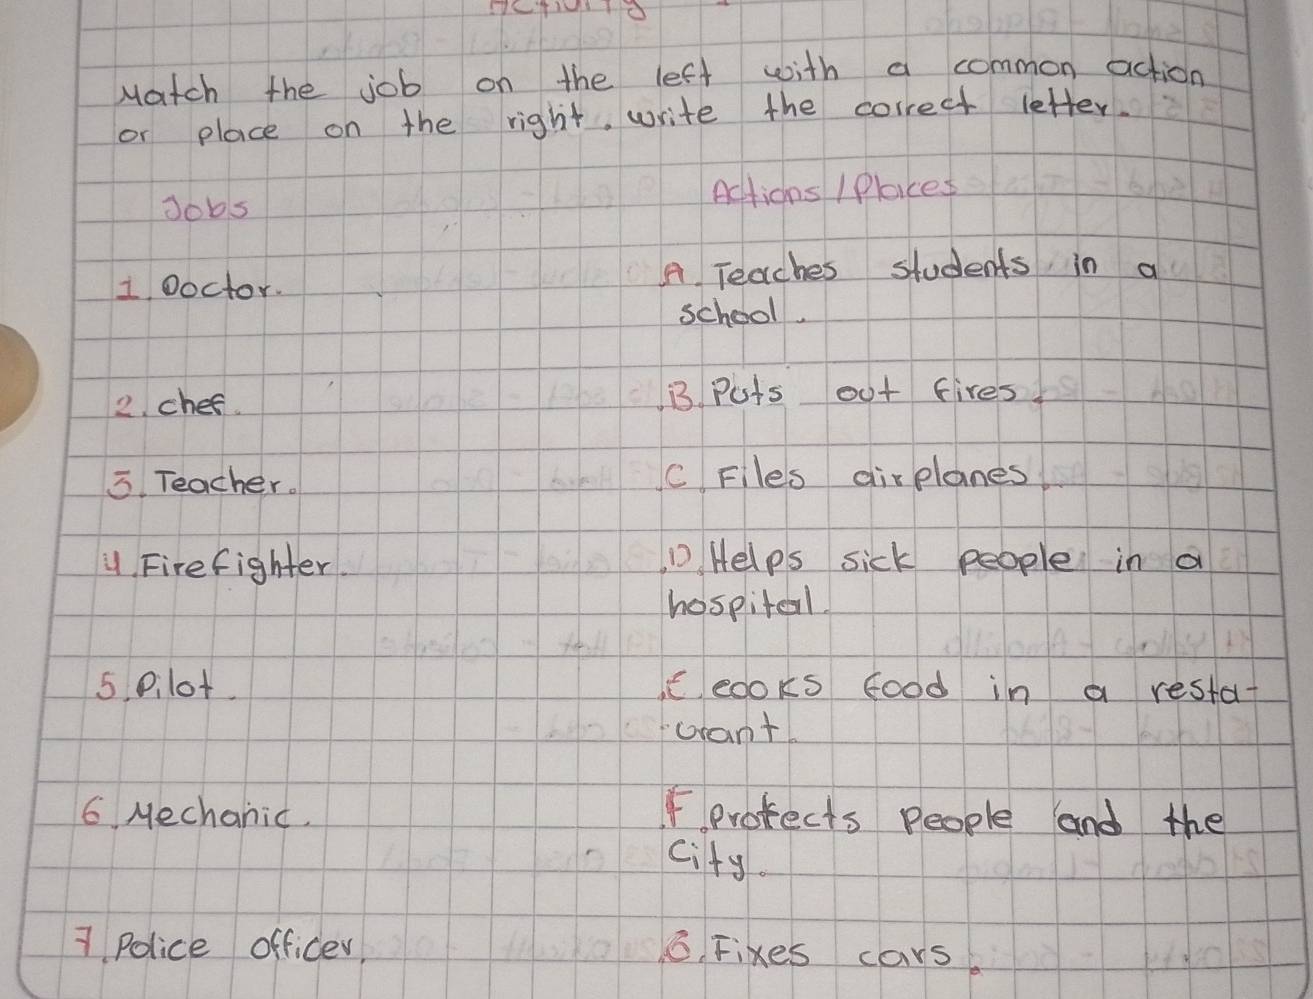 Activity
Match the job on the left with a common action
or place on the right. write the correct letter.
Jobs Actions / Places
1. Doctor. A. Teaches students in a
school.
2. chef. B. Puts out fires.
3. Teacher. C. Files airplanes.
4. Firefighter. D. Helps sick people in a
hospital.
5. Pilot. E. cooks food in a resta-
urant.
6. Mechanic. F. protects people and the
City.
7. Police officer. G. Fixes cars.